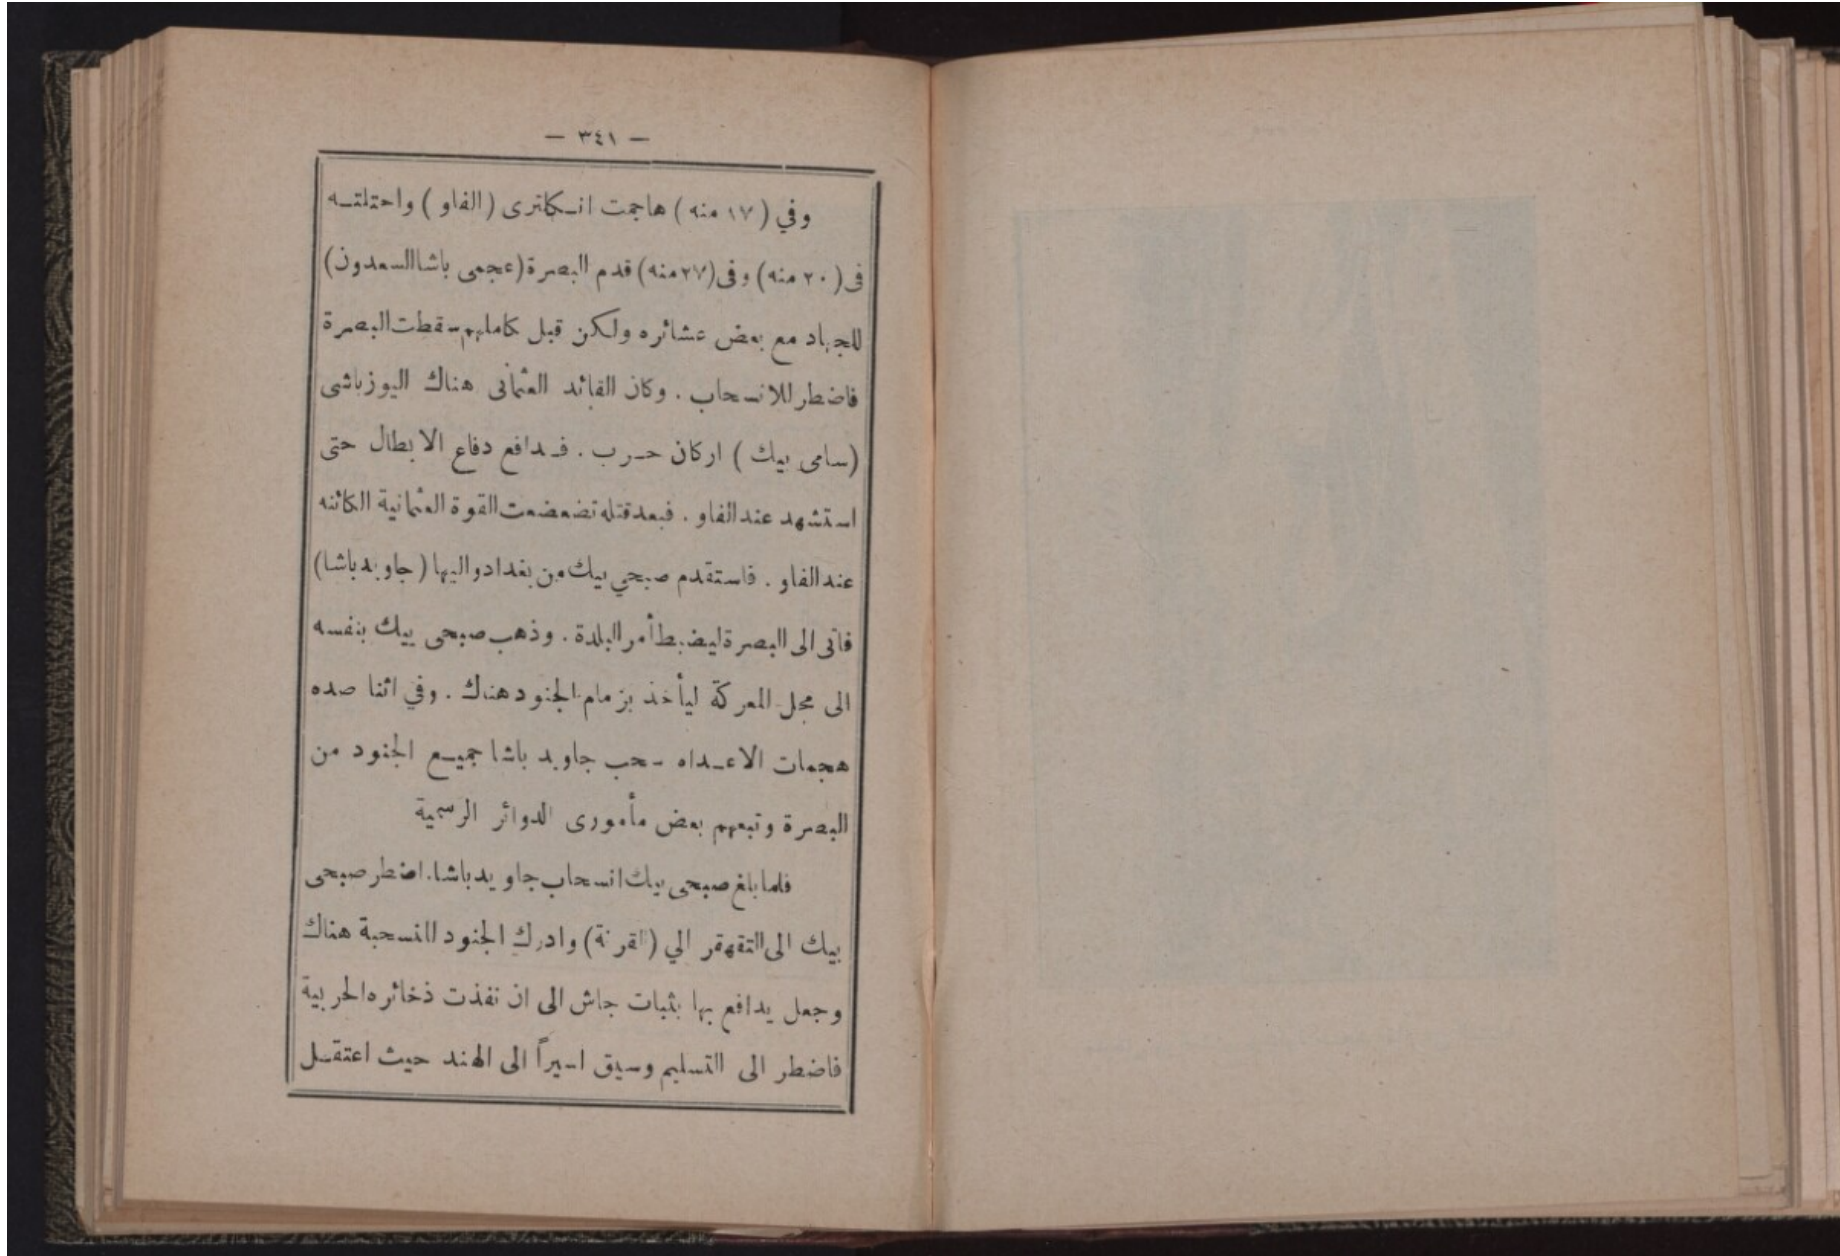 — ٣٤١ —
وفي (١٧ منه) هاجمت انـكلترى (الفاو) واحتلتـه
فى (٢٠ منه) وفى (٢٧ منه) قدم البصرة (عجمى باشا السعدون)
للجهاد مع بعض عشائره ولكن قبل تكاملهم سقطت البصرة
فاضطر للانسحاب . وكان القائد العثمانى هناك اليوزباشى
(سامى بيك) اركان حـرب . فـدافع دفاع الابطال حتى
استشهد عند الفاو . فبعد قتله تضعضعت القوة العثمانية الكائنه
عند الفاو . فاستقدم صبحي بيك من بغداد واليها (جاويد باشا)
فاتى الى البصرة ليضبط أمر البلدة . وذهب صبحى بيك بنفسه
الى محل المعركة ليأخذ بزمام الجنود هناك . وفي اثنا صده
هجمات الاعـداه سحب جاويد باشا جميـع الجنود من
البصرة وتبعهم بعض مأمورى الدوائر الرسمية
فلما بلغ صبحى بيك انسحاب جاويد باشا . اضطر صبحى
بيك الى التقهقر الي (القرنة) وادرك الجنود المنسحبة هناك
وجعل يدافع بها بثبات جاش الى ان نفذت ذخائره الحربية
فاضطر الى التسليم وسيق اسيراً الى الهند حيث اعتقـل